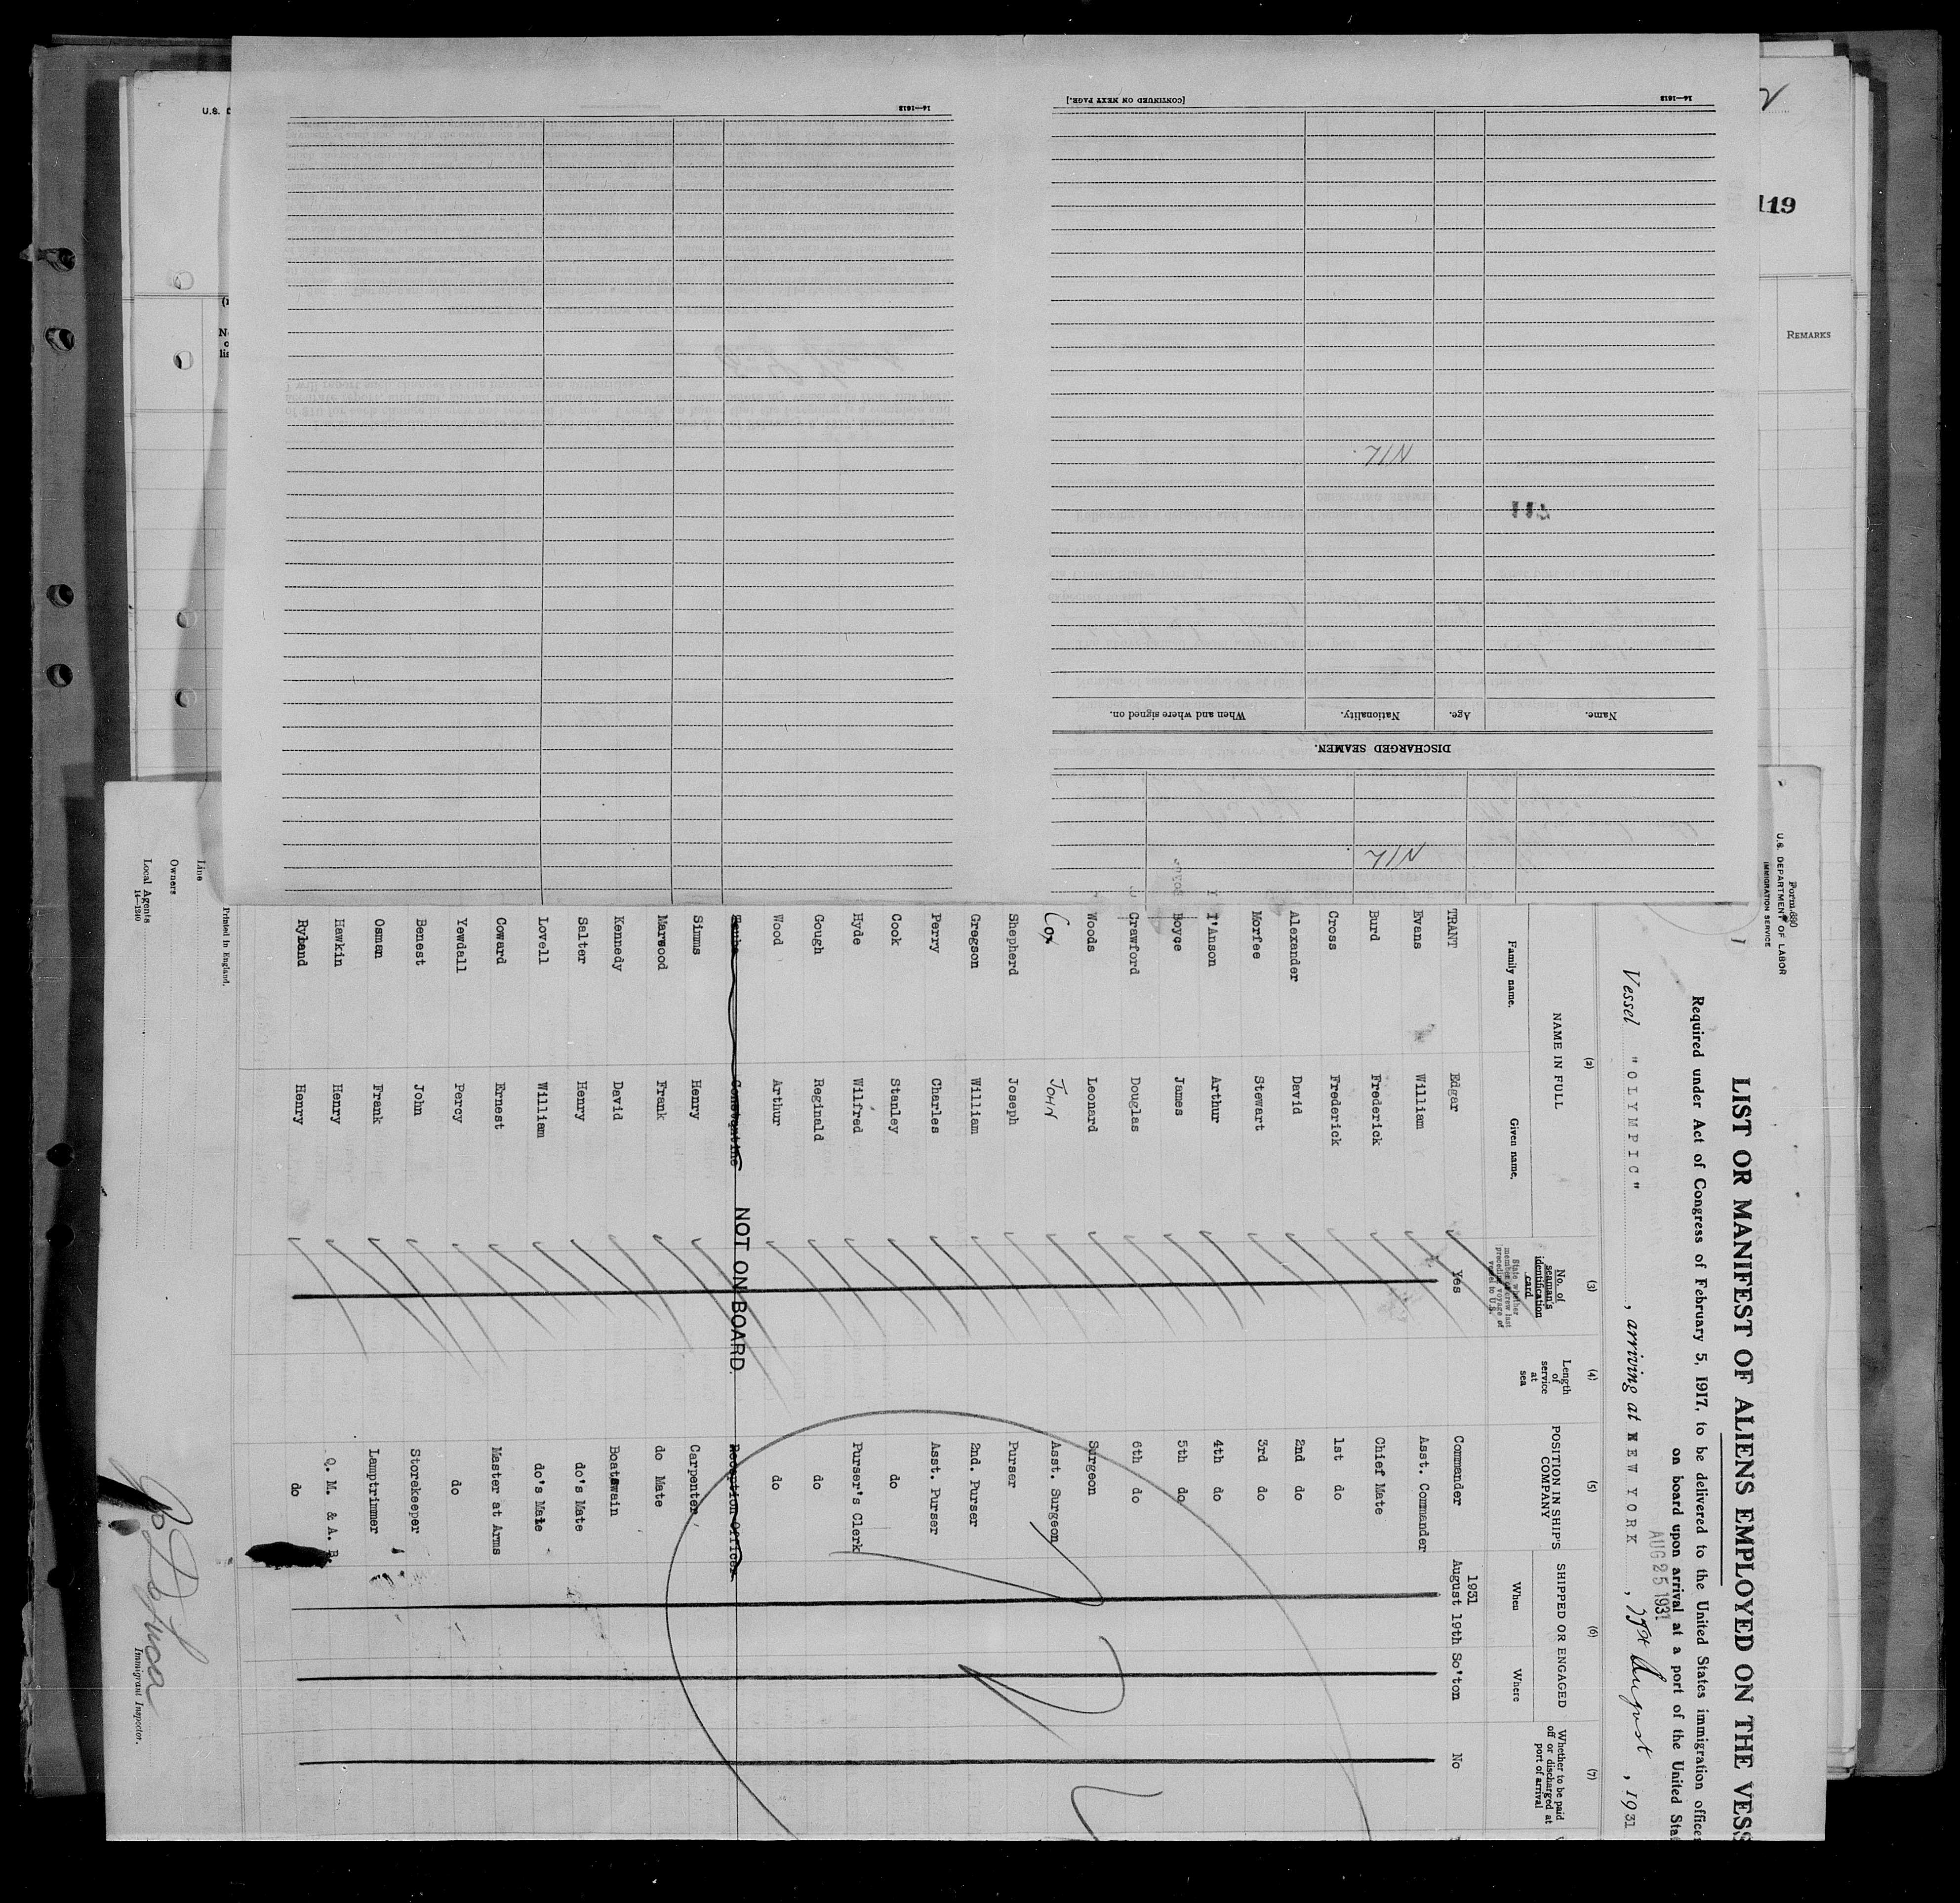 U.S. D
14—1613
[CONTINUED ON NEXT PAGE.]
14—1613
119
REMARKS
NIL
Name.
Age.
Nationality.
When and where signed on.
DISCHARGED SEAMEN.
NIL
Form 680
U.S. DEPARTMENT OF LABOR
IMMIGRATION SERVICE
LIST OR MANIFEST OF ALIENS EMPLOYED ON THE VESS
Required under Act of Congress of February 5, 1917, to be delivered to the United States immigration officer
on board upon arrival at a port of the United Sta
AUG 25 1931
Vessel "OLYMPIC", arriving at NEW YORK, August, 1931
(2) (3) (4) (5) (6) (7)
NAME IN FULL
Family name. Given name.
No. of seaman's identification card
State whether member of crew last preceding voyage of vessel to U.S.
Length of service at sea
POSITION IN SHIP'S COMPANY
SHIPPED OR ENGAGED
When Where
Whether to be paid off or discharged at port of arrival
1931
TRANT Edgar Yes Commander August 19th So'ton No
Evans William Asst. Commander
Burd Frederick Chief Mate
Cross Frederick 1st do
Alexander David 2nd do
Morfee Stewart 3rd do
I'Anson Arthur 4th do
Boyce James 5th do
Crawford Douglas 6th do
Woods Leonard Surgeon
Cox JOHN Asst. Surgeon
Shepherd Joseph Purser
Gregson William 2nd. Purser
Perry Charles Asst. Purser
Cook Stanley do
Hyde Wilfred Purser's Clerk
Gough Reginald do
Wood Arthur do
Constantine NOT ON BOARD. Reception Officer
Simms Henry Carpenter
Marwood Frank do Mate
Kennedy David Boatswain
Salter Henry do's Mate
Lovell William do's Mate
Coward Ernest Master at Arms
Yewdall Percy do
Benest John Storekeeper
Osman Frank Lamptrimmer
Hawkin Henry Q. M. & A. B.
Ryland Henry do
Printed in England.
Line
Owners
Local Agents
14—1240
Immigrant Inspector.